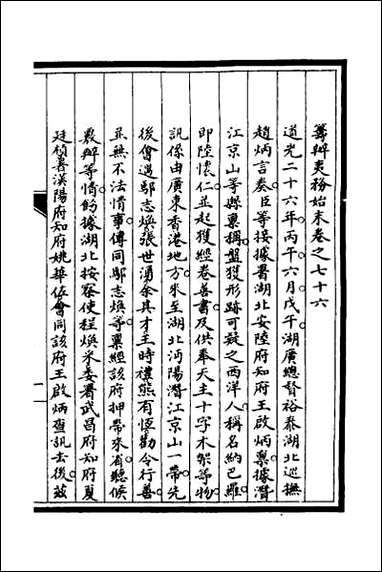 籌辦夷務始末卷之七十六
道光二十六年丙午六月戊午湖廣總督裕泰湖北巡撫
趙炳言奏臣等接據署湖北安陸府知府王啟炳稟據潛
江京山等縣稟稱盤獲形跡可疑之西洋人稱名納巴羅
即陸懷仁並起獲經卷善書及供奉天主十字木架等物
訊係由廣東香港地方來至湖北沔陽潛江京山一帶先
後會遇鄢志煥張世湧余其才王時禮熊有恆勸令行善
並無不法情事傳同鄢志煥等稟經該府押帶來省聽候
嚴辦等情飭據湖北按察使程煥采委署武昌府知府夏
廷楨署漢陽府知府姚華佐會同該府王啟炳查訊去後茲
一